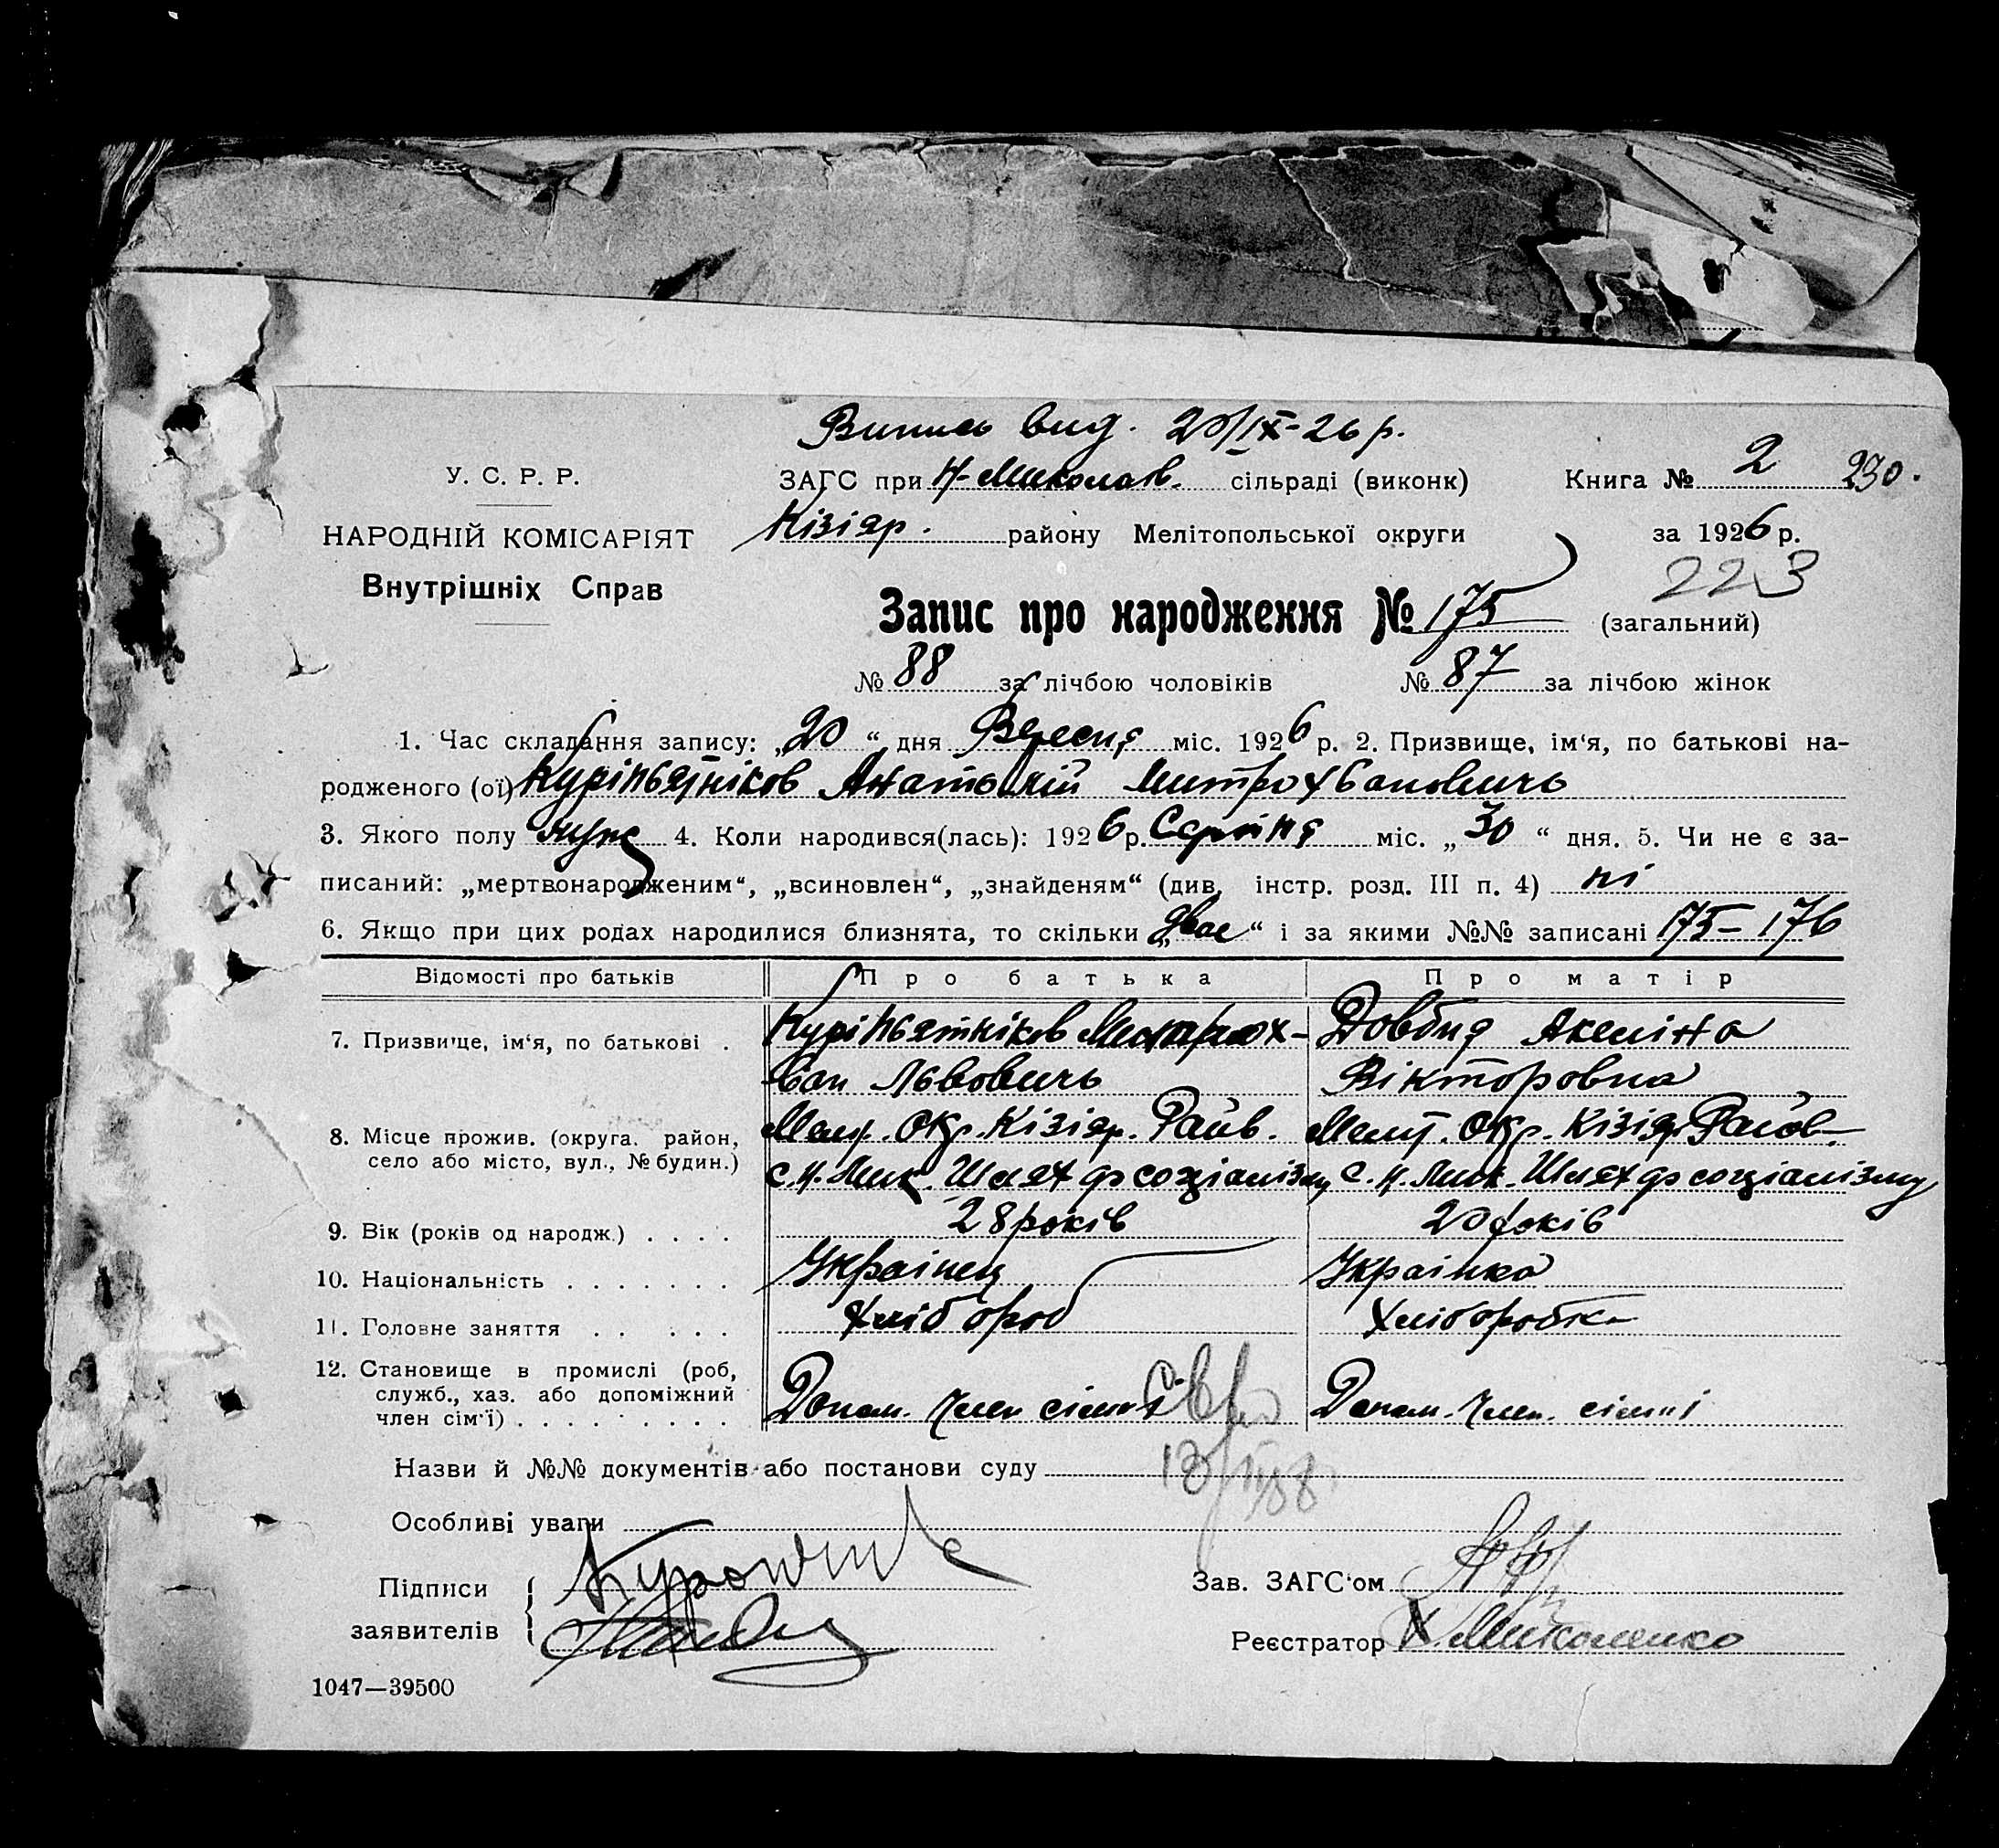 Випись вид. 20/IX-26 р.
У. С. Р. Р.
ЗАГС при Н-Миколаїв. сільраді (виконк)
Книга № 2 230.
НАРОДНІЙ КОМІСАРІЯТ
Кізіяр. району Мелітопольської округи
за 1926 р.
Внутрішніх Справ
223
Запис про народження № 175 (загальний)
№ 88 за лічбою чоловіків № 87 за лічбою жінок
1. Час складання запису: „20“ дня Вересня міс. 1926 р. 2. Призвище, ім‘я, по батькові на-
родженого (ої) Куріпьятніков Анатолій Митрохванович
3. Якого полу муж 4. Коли народився(лась): 1926 р. Серпня міс. „30“ дня. 5. Чи не є за-
писаний: „мертвонародженим“, „всиновлен“, „знайденям“ (див, інстр. розд. III п. 4) ні
6. Якщо при цих родах народилися близнята, то скільки „двое“ і за якими №№ записані 175-176
Відомості про батьків
Про батька
Про матір
7. Призвище, ім‘я, по батькові .
Куріпьятніков Митрох-
ван Львовичь
Довбня Акеліна
Вікторовна
8. Місце прожив. (округа. район,
село або місто, вул., № будин.)
Мелит. Окр. Кізіяр. Райв.
с. Н. Мик. Шлях до соціалізму
Мелит. Окр. Кізіяр Райов.
с. Н. Мик. Шлях до соціалізму
9. Вік (років од народж.) . . . .
28 років
20 років
10. Національність . . . . . . .
Украінец
Украінка
11. Головне заняття . . . . .
Хлібороб
Хлібробка
12. Становище в промислі (роб,
служб., хаз. або допоміжний
член сім‘ї) . . . . . . . . .
Допом. член сімьі
Допом. член. сімьі
Назви й №№ документів або постанови суду
Особливі уваги
Підписи
заявителів
Зав. ЗАГС‘ом
Реєстратор Х. Миколенко
1047—39500